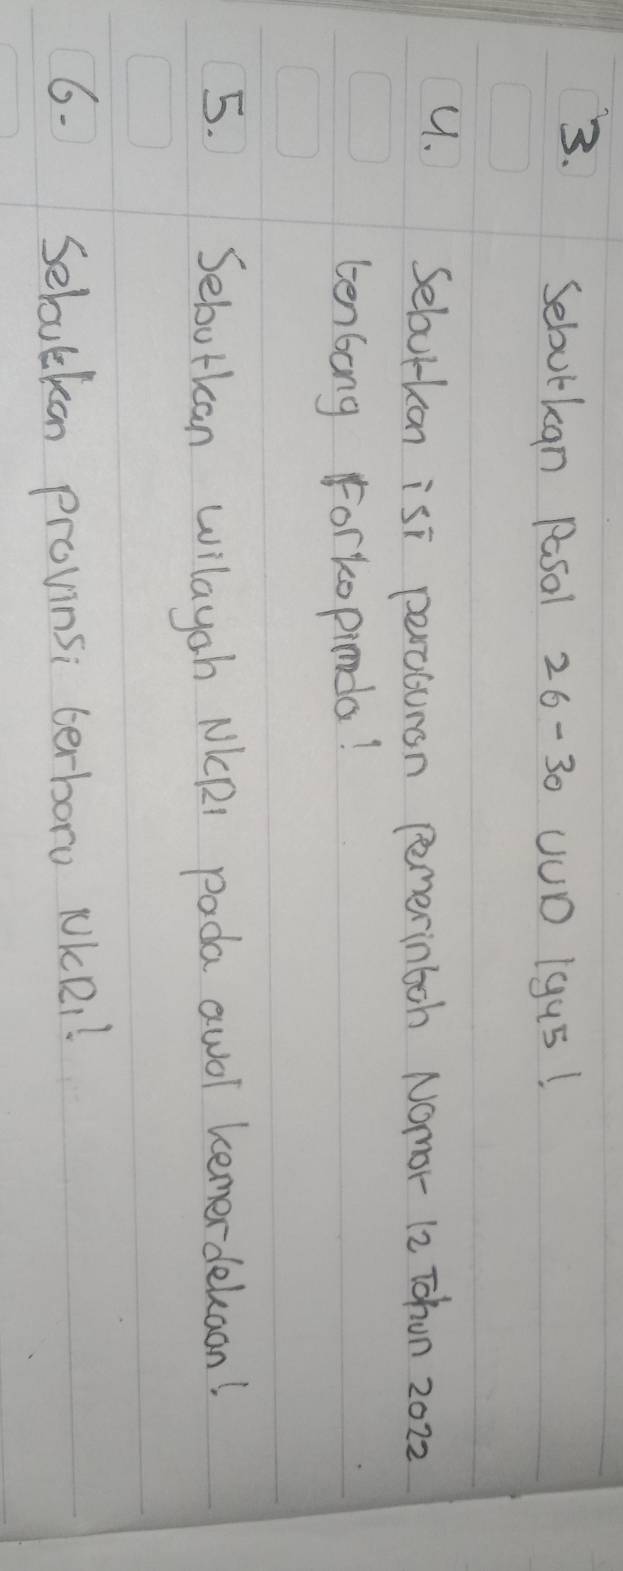 3. Sebutkan Pasal 26-30 UUD 1945!
4. Sebutkan isi peraturan Pemerintah Nomor 12 Tahun 2022
tentang Forkopimda!
5. Sebutkan wilayah NKRI pada awal kemerdekaan!
6. Sebutkan provinsi terbaru NKRI!